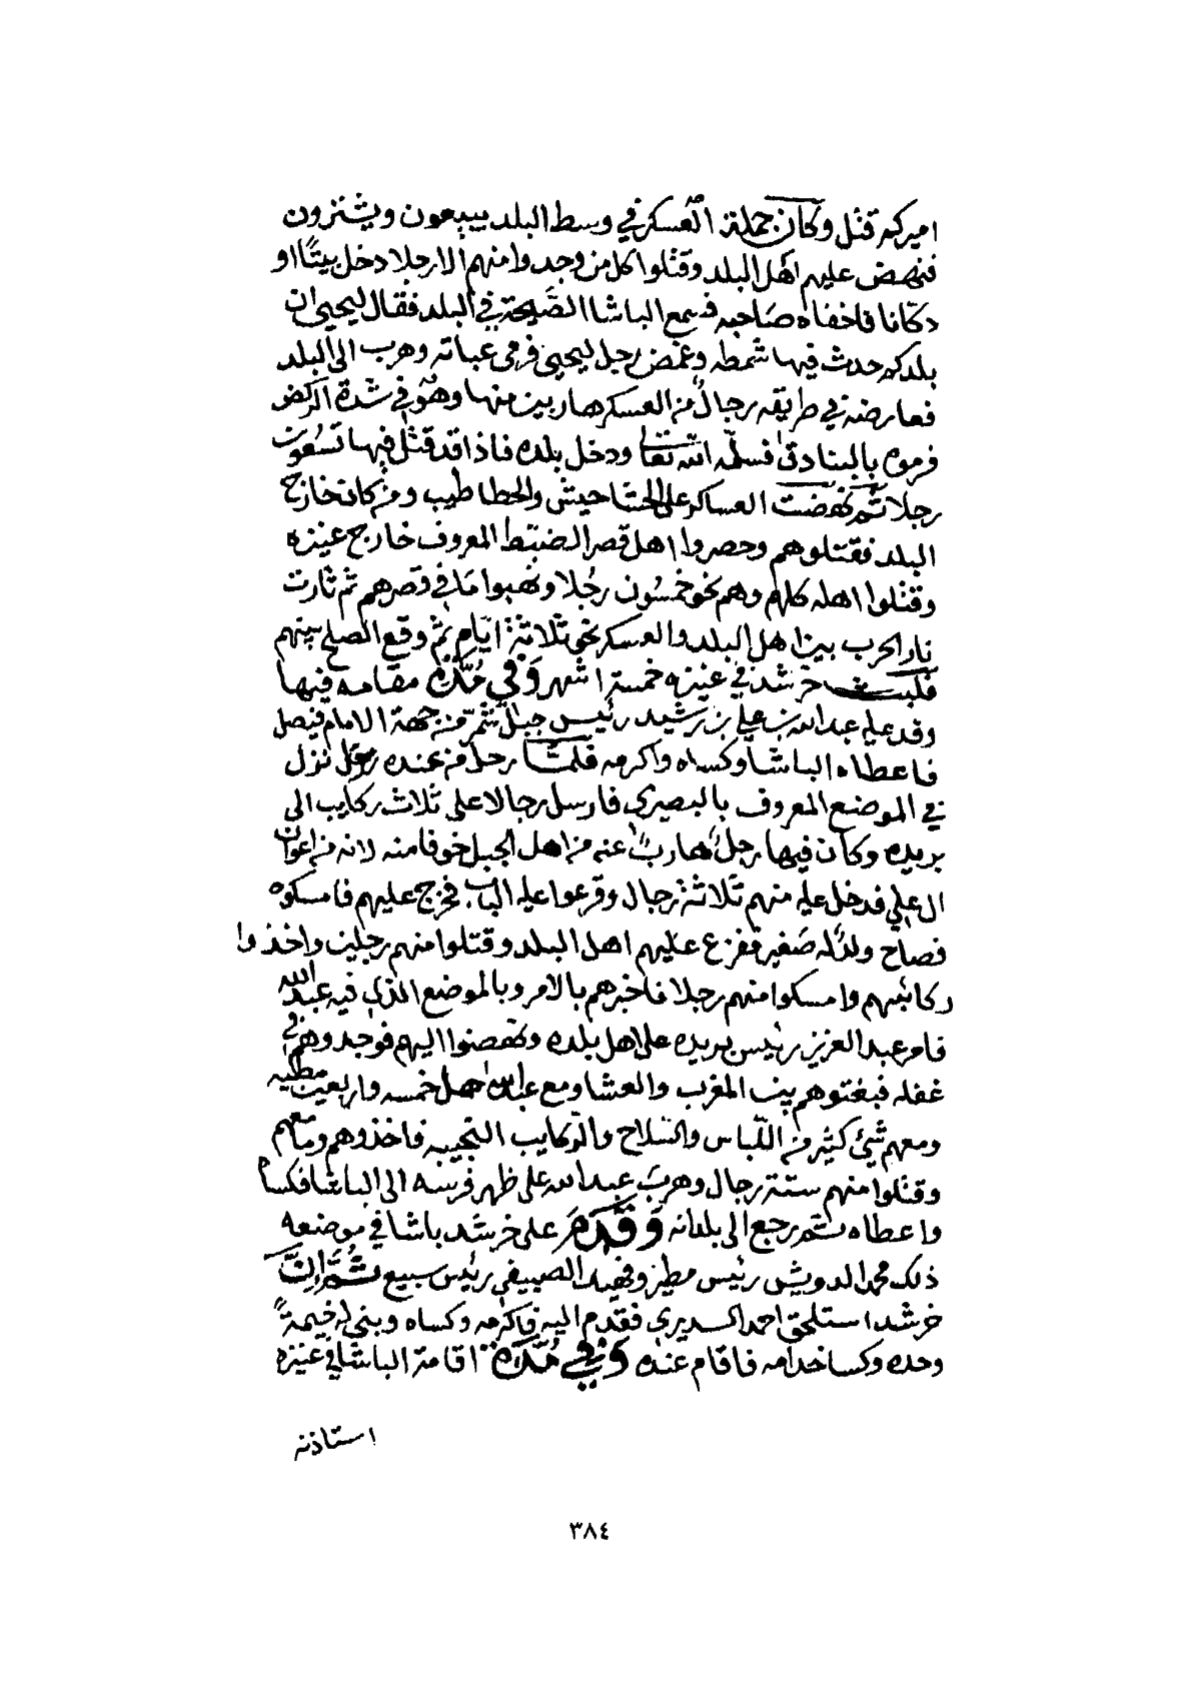 اميركم قتل وكان جملة العسكر في وسط البلد يبيعون ويشترون
فنهض عليهم اهل البلد وقتلوا كل من وجدوا منهم الا رجلا دخل بيتًا او
دكانا فاخفاه صاحبه فسمع الباشا الصَّيحة في البلد فقال ليحيى ان
بلدكم حدث فيها شمطه وغمض رجل ليحيى فرمى عباته وهرب الى البلد
فعارضه في طريقه رجالٌ من العسكر هاربين منها وهو في شدة الركض
فرموه بالبنادق فسلّمه الله تعالى ودخل بلده فاذا قد قتل فيها تسعون
رجلا ثم نهضت العساكر على الحشاحيش والحطاطيب ومن كان خارج
البلد فقتلوهم وحصروا اهل قصر الضبّط المعروف خارج عنيزه
وقتلوا اهله كلهم وهم نحو خمسُون رجُلا ونهبوا مَا في قصرهم ثم ثارت
نار الحرب بين اهل البلد والعسكر نحو ثلاثة ايّام ثم وقع الصلح بينهم
فلبث خرشد في عنيزه خمسة اشهر وَفي مُدَّة مقامه فيها
وفد عليه عبدالله بن علي بن رشيد رئيس جبل شمّر من جهة الامام فيصل
فاعطاه الباشا وكساه واكرمه فلمّا رحل من عنده نزل
في الموضع المعروف بالبصيرى فارسل رجالا على ثلاث ركايب الى
بريده وكان فيها رجلٌ هاربٌ عنه من اهل الجبل خوفا منه لانه من اعوان
ال علي فدخل عليه منهم ثلاثة رجال وقرعوا عليه الباب فخرج عليهم فامسكوه
فصاح ولدٌ له صَغير ففزع عليهم اهل البلد وقتلوا منهم رجلين واخذوا
ركائبهم وامسكوا منهم رجلا فاخبرهم بالامر وبالموضع الذي فيه عبدالله
فامر عبد العزيز رئيس بريده على اهل بلده ونهضوا اليهم فوجدوهم في
غفله فبغتوهم بين المغرب والعشا ومع عبدالله اهل خمسه واربعين مطيه
ومعهم شيئ كثير من اللّباس والسّلاح والرّكايب النّجيبه فاخذوهم وما معهم
وقتلوا منهم ستة رجال وهربَ عبدالله على ظهر فرسه الى الباشا فكساه
واعطاه ثم رجع الى بلدانه وَقَدَمَ على خرشد باشا في موضعه
ذلك محمد الدويش رئيس مطير وفهيد الصييفي رئيس سبيع ثُمَّ اِنَّ
خرشد استلحق احمد السديري فقدم اليه فاكرمه وكساه وبنى له خيمةً
وحده وكسا خدامه فاقام عنده وَفي مُدَّة اقامة الباشا في عنيزه
استاذنه
٣٨٤